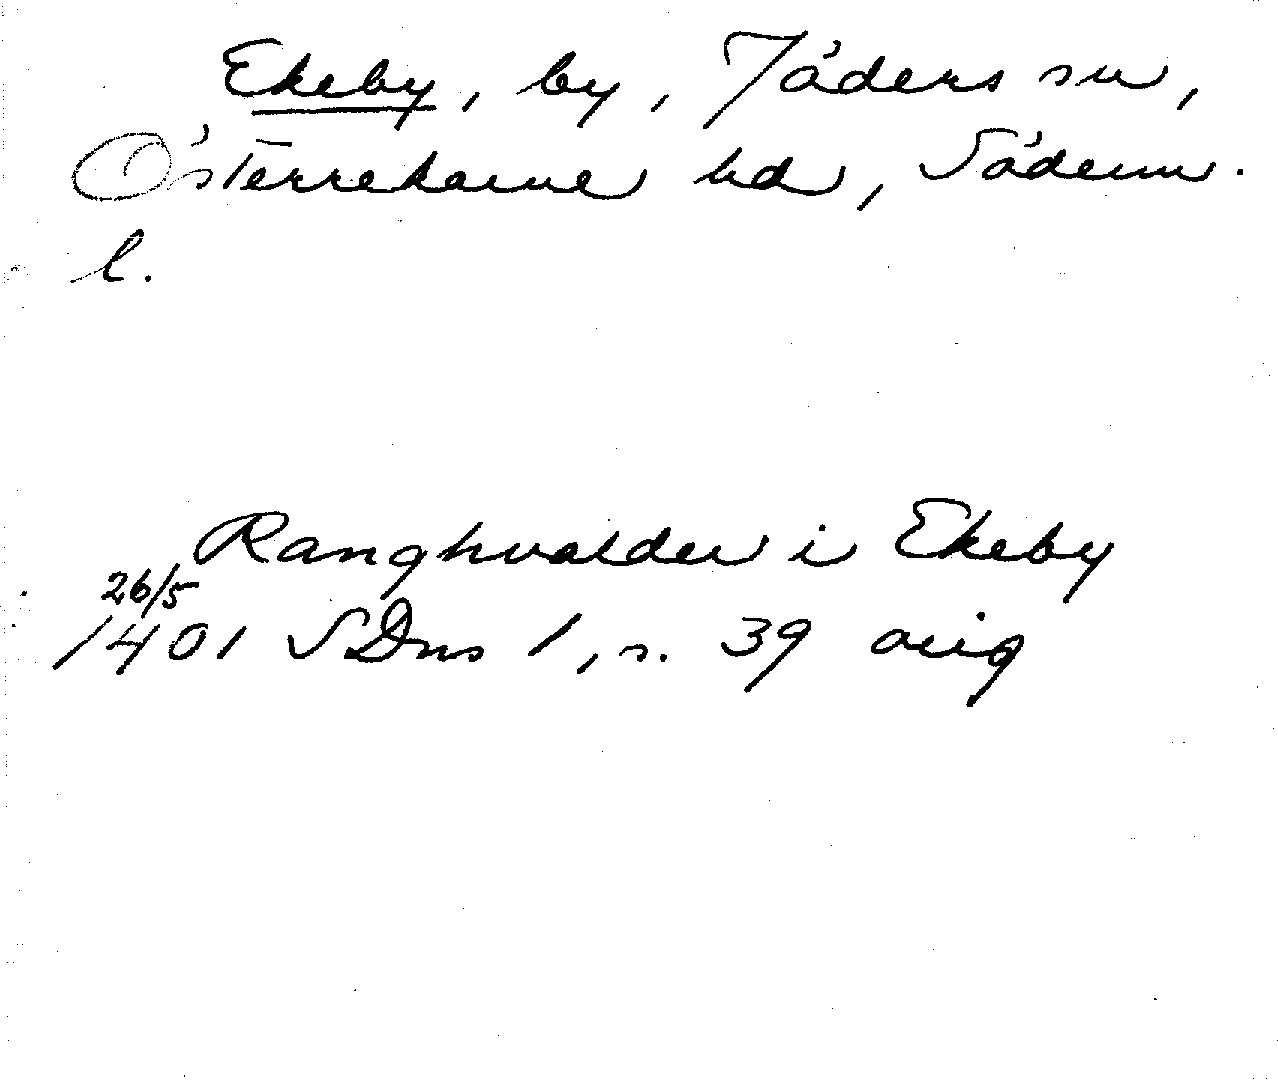 Ekeby, by, Jäders sn,
Österrekarne hd, Söderm.
l.
Ranghvalder i Ekeby
26/5
1401 SDns 1, s. 39 orig